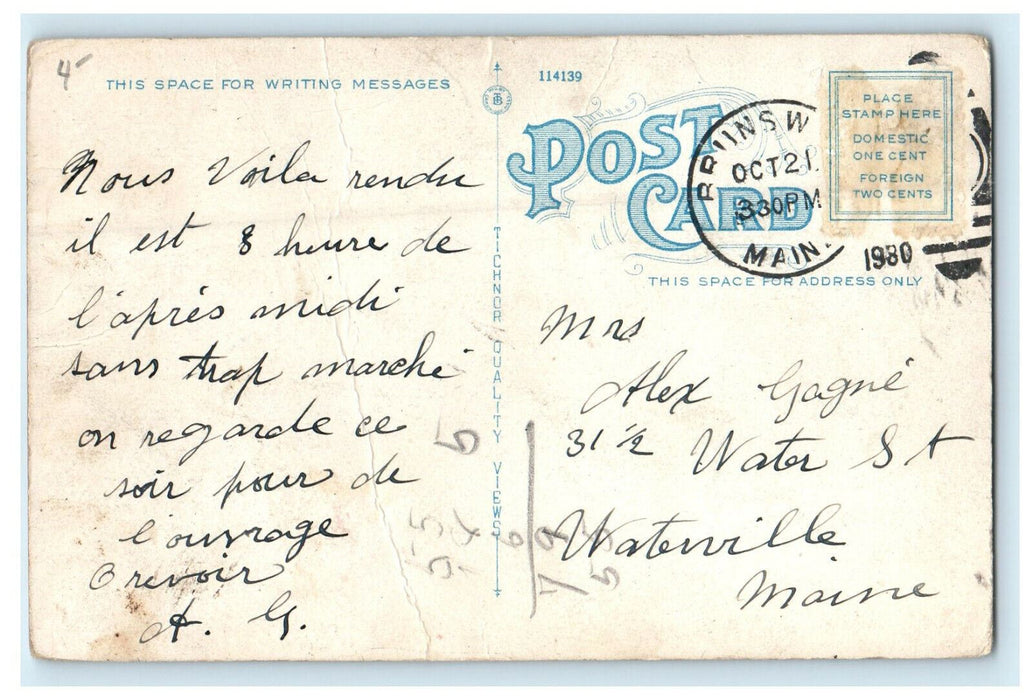 4
THIS SPACE FOR WRITING MESSAGES
Nous Voila rendu
il est 8 heure de
l'après midi
sans trop marché
on regarde ce
soir pour de
l'ouvrage
O revoir
A. G.
TICHNOR QUALITY VIEWS
114139
POST
CARD
BRUNSW
OCT 21
330PM
MAIN
1930
PLACE
STAMP HERE
DOMESTIC
ONE CENT
FOREIGN
TWO CENTS
THIS SPACE FOR ADDRESS ONLY
Mrs
Alex Gagné
31 ½ Water St
Waterville
Maine